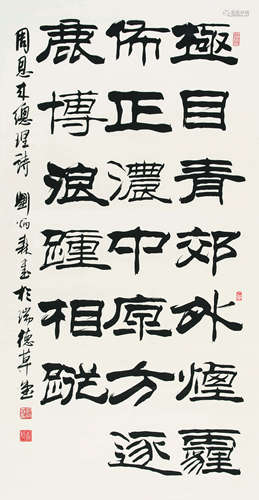 極目青郊外煙霾
佈正濃中原方逐
鹿博浪踵相蹤
周恩來總理詩 劉炳森書於瑞德草堂